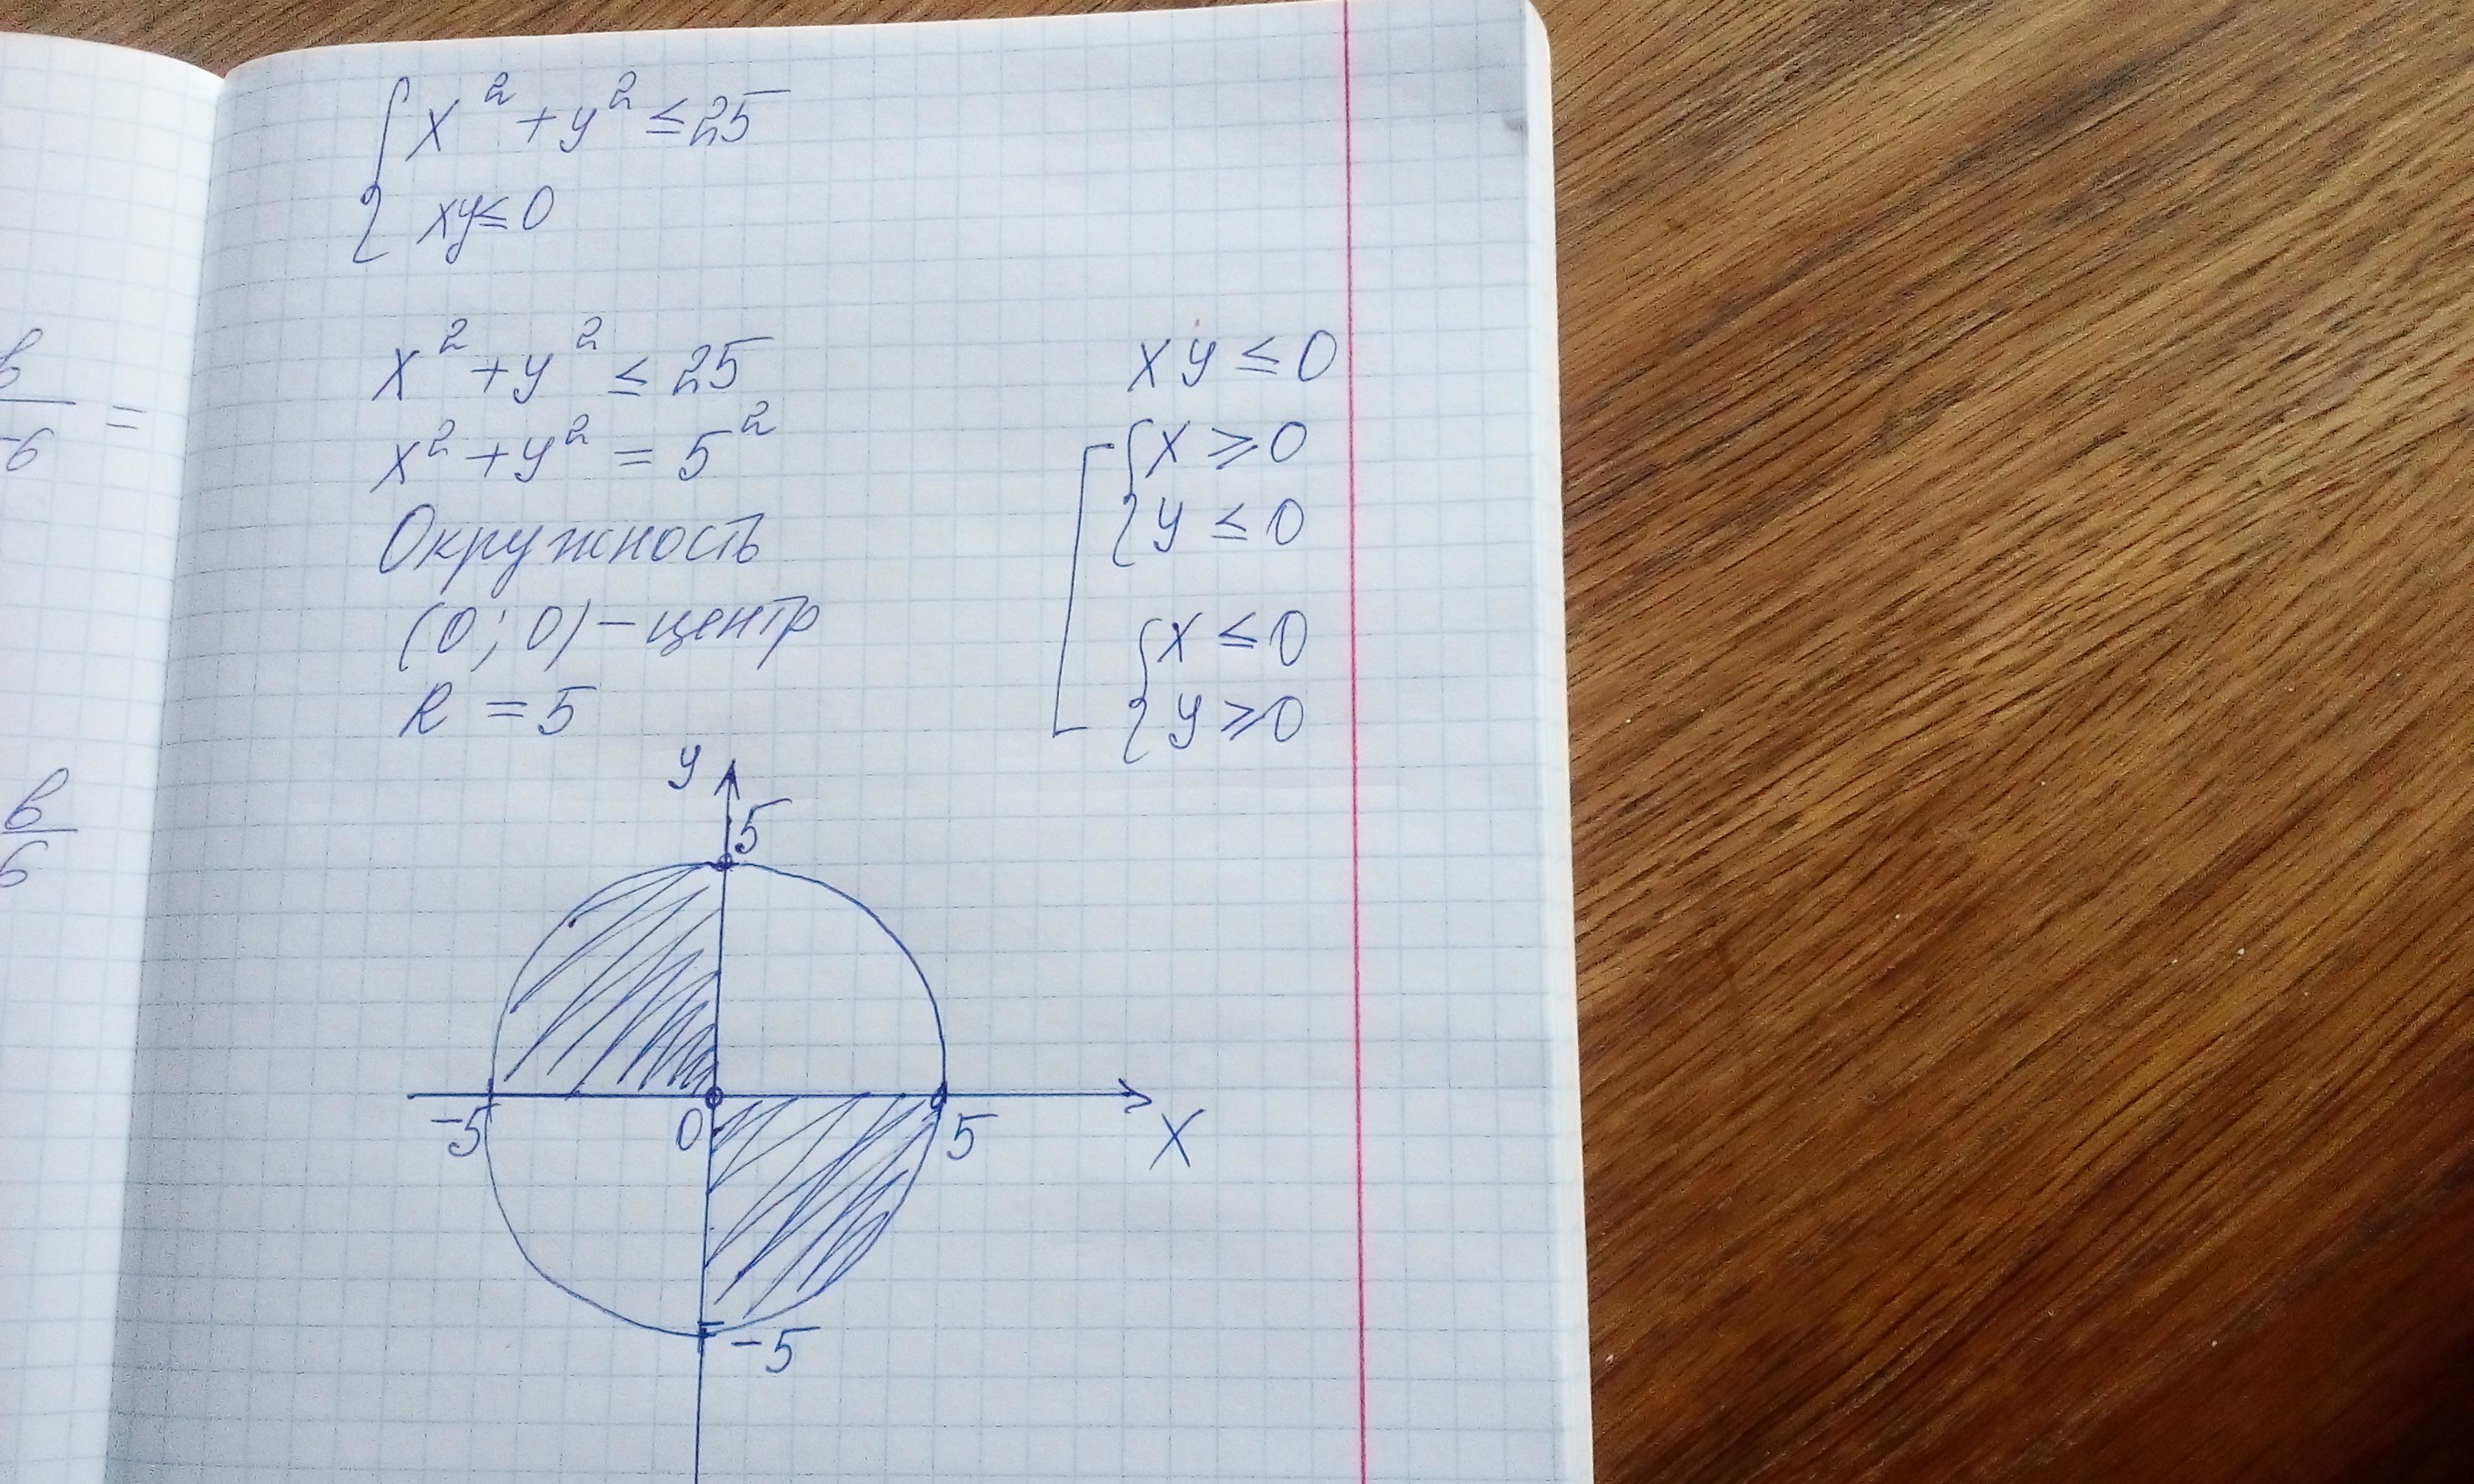 { x² + y² ≤ 25
{ xy ≤ 0
x² + y² ≤ 25
x² + y² = 5²
Окружность
(0; 0) – центр
R = 5
xy ≤ 0
[ { x ≥ 0
{ y ≤ 0
{ x ≤ 0
{ y ≥ 0
y
5
-5
0
5
x
-5
в
-6 =
в
6